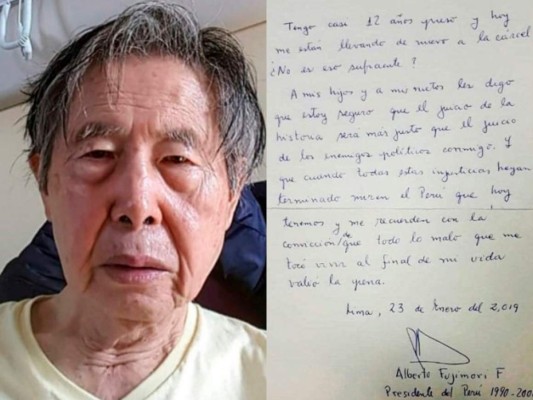 Tengo casi 12 años preso y hoy
me están llevando de nuevo a la cárcel
¿No es eso suficiente?
A mis hijos y a mis nietos les digo
que estoy seguro que el juicio de la
historia será más justo que el juicio
de los enemigos políticos conmigo. Y
que cuando todas estas injusticias hayan
terminado miren el Perú que hoy
tenemos y me recuerden con la
convicción de que todo lo malo que me
tocó vivir al final de mi vida
valió la pena.
Lima, 23 de Enero del 2,019
Alberto Fujimori F
Presidente del Perú 1990-200